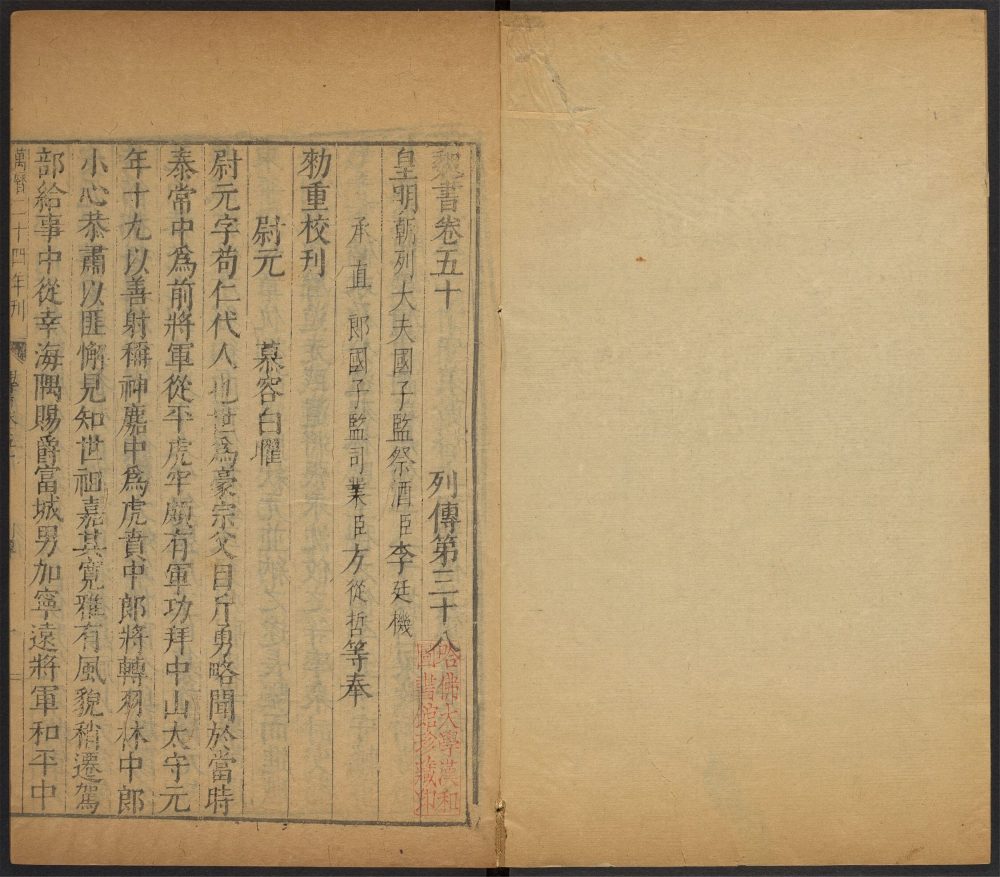 魏書卷五十 列傳第三十八
皇明朝列大夫國子監祭酒臣李廷機
承直郎國子監司業臣方從哲等奉
勑重校刊
尉元 慕容白曜
尉元字苟仁代人也世爲豪宗父目斤勇略聞於當時
泰常中爲前將軍從平虎牢頗有軍功拜中山太守元
年十九以善射稱神䴥中爲虎賁中郎將轉羽林中郎
小心恭肅以匪懈見知世祖嘉其寬雅有風貌稍遷駕
部給事中從幸海隅賜爵富城男加寧遠將軍和平中
萬曆二十四年刊
哈佛大學漢和
圖書館珍藏印